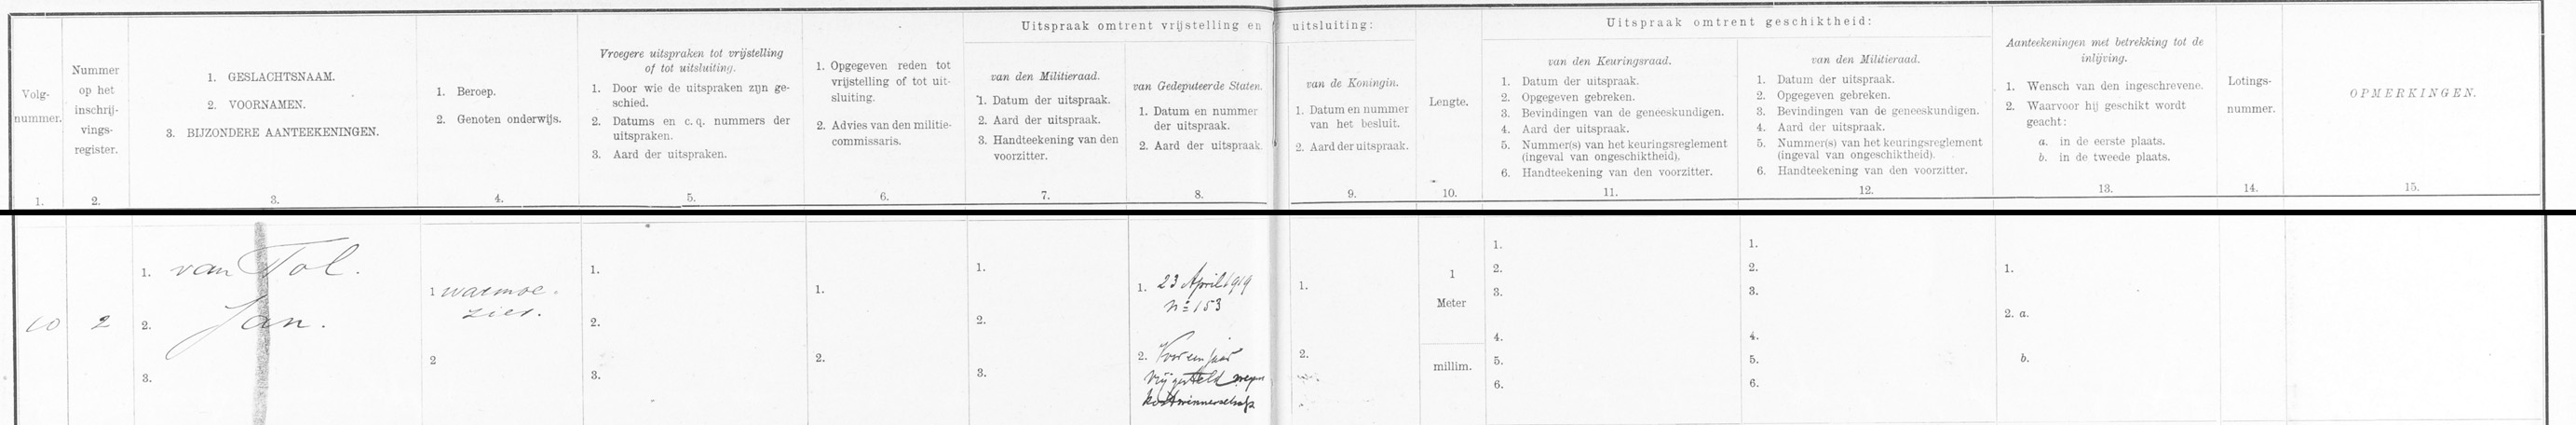 Uitspraak omtrent vrijstelling en uitsluiting:
Uitspraak omtrent geschiktheid:
Volg-
nummer.
1.
Nummer
op het
inschrij-
vings-
register.
2.
1. GESLACHTSNAAM.
2. VOORNAMEN.
3. BIJZONDERE AANTEEKENINGEN.
3.
1. Beroep.
2. Genoten onderwijs.
4.
Vroegere uitspraken tot vrijstelling
of tot uitsluiting.
1. Door wie de uitspraken zijn ge-
schied.
2. Datums en c. q. nummers der
uitspraken.
3. Aard der uitspraken.
5.
1. Opgegeven reden tot
vrijstelling of tot uit-
sluiting.
2. Advies van den militie-
commissaris.
6.
van den Militieraad.
1. Datum der uitspraak.
2. Aard der uitspraak.
3. Handteekening van den
voorzitter.
7.
van Gedeputeerde Staten.
1. Datum en nummer
der uitspraak.
2. Aard der uitspraak.
8.
van de Koningin.
1. Datum en nummer
van het besluit.
2. Aard der uitspraak.
9.
Lengte.
10.
van den Keuringsraad.
1. Datum der uitspraak.
2. Opgegeven gebreken.
3. Bevindingen van de geneeskundigen.
4. Aard der uitspraak.
5. Nummer(s) van het keuringsreglement
(ingeval van ongeschiktheid).
6. Handteekening van den voorzitter.
11.
van den Militieraad.
1. Datum der uitspraak.
2. Opgegeven gebreken.
3. Bevindingen van de geneeskundigen.
4. Aard der uitspraak.
5. Nummer(s) van het keuringsreglement
(ingeval van ongeschiktheid).
6. Handteekening van den voorzitter.
12.
Aanteekeningen met betrekking tot de
inlijving.
1. Wensch van den ingeschrevene.
2. Waarvoor hij geschikt wordt
geacht:
a. in de eerste plaats.
b. in de tweede plaats.
13.
Lotings-
nummer.
14.
OPMERKINGEN.
15.
10
2
1. van Tol.
2. Jan.
3.
1 warmoe-
zier.
2
1.
2.
3.
1.
2.
1.
2.
3.
1. 23 April 1919
no 153
2. Voor een jaar
vrijgesteld wegens
kostwinnerschap
1.
2.
1
Meter
millim.
1.
2.
3.
4.
5.
6.
1.
2.
3.
4.
5.
6.
1.
2. a.
b.